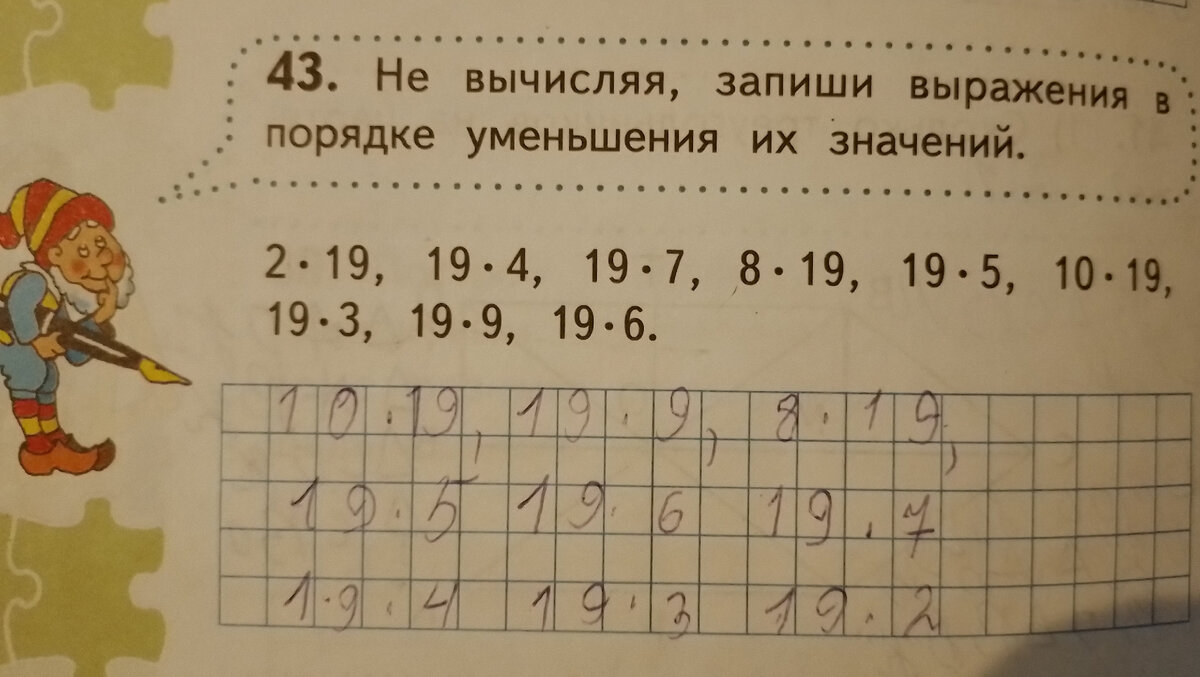 43. Не вычисляя, запиши выражения в
порядке уменьшения их значений.
2 · 19, 19 · 4, 19 · 7, 8 · 19, 19 · 5, 10 · 19,
19 · 3, 19 · 9, 19 · 6.
10 · 19, 19 · 9, 8 · 19,
19 · 5 19 · 6 19 · 7
19 · 4 19 · 3 19 · 2